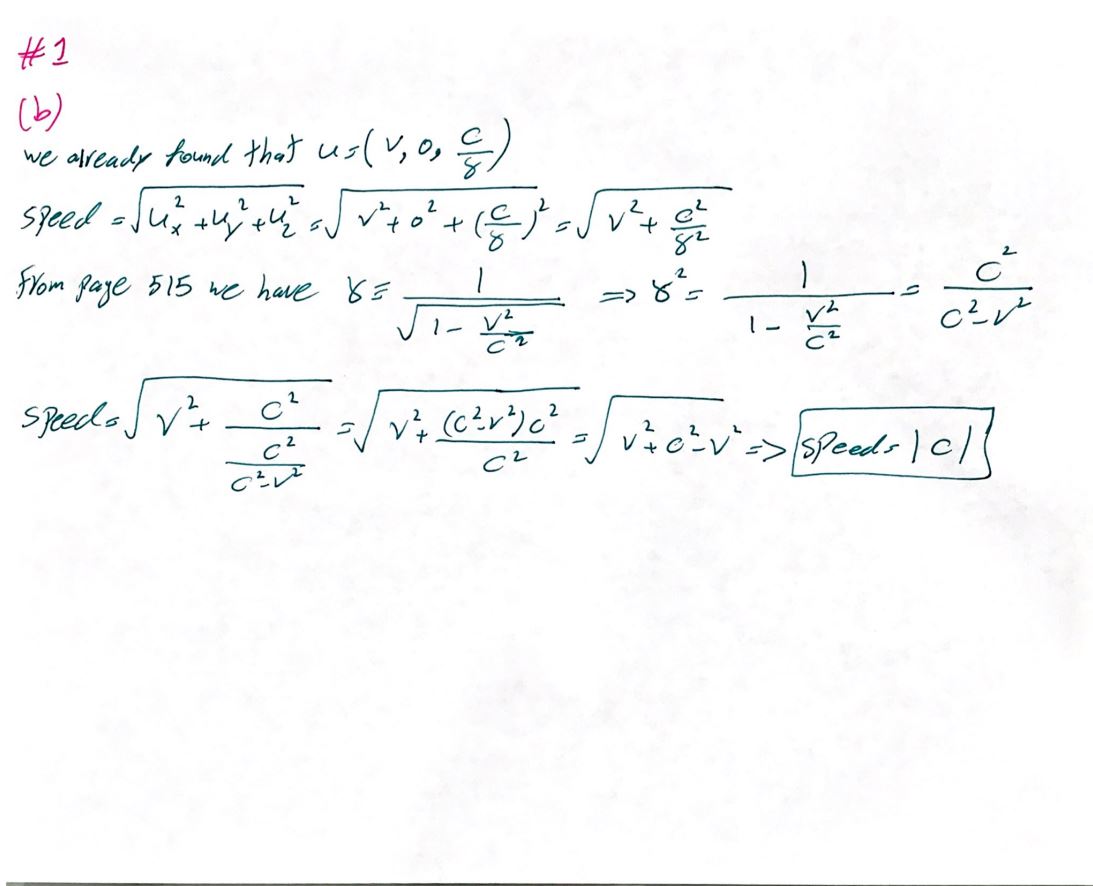 #1
(b)
we already found that u=(v, 0, c/γ)
speed = √(u_x² + u_y² + u_z²) = √(v² + 0² + (c/γ)²) = √(v² + c²/γ²)
From page 515 we have γ ≡ 1/√(1 - v²/c²) => γ² = 1/(1 - v²/c²) = c²/(c² - v²)
speed = √(v² + c²/(c²/(c² - v²))) = √(v² + (c² - v²)c²/c²) = √(v² + c² - v²) => speed = |c|